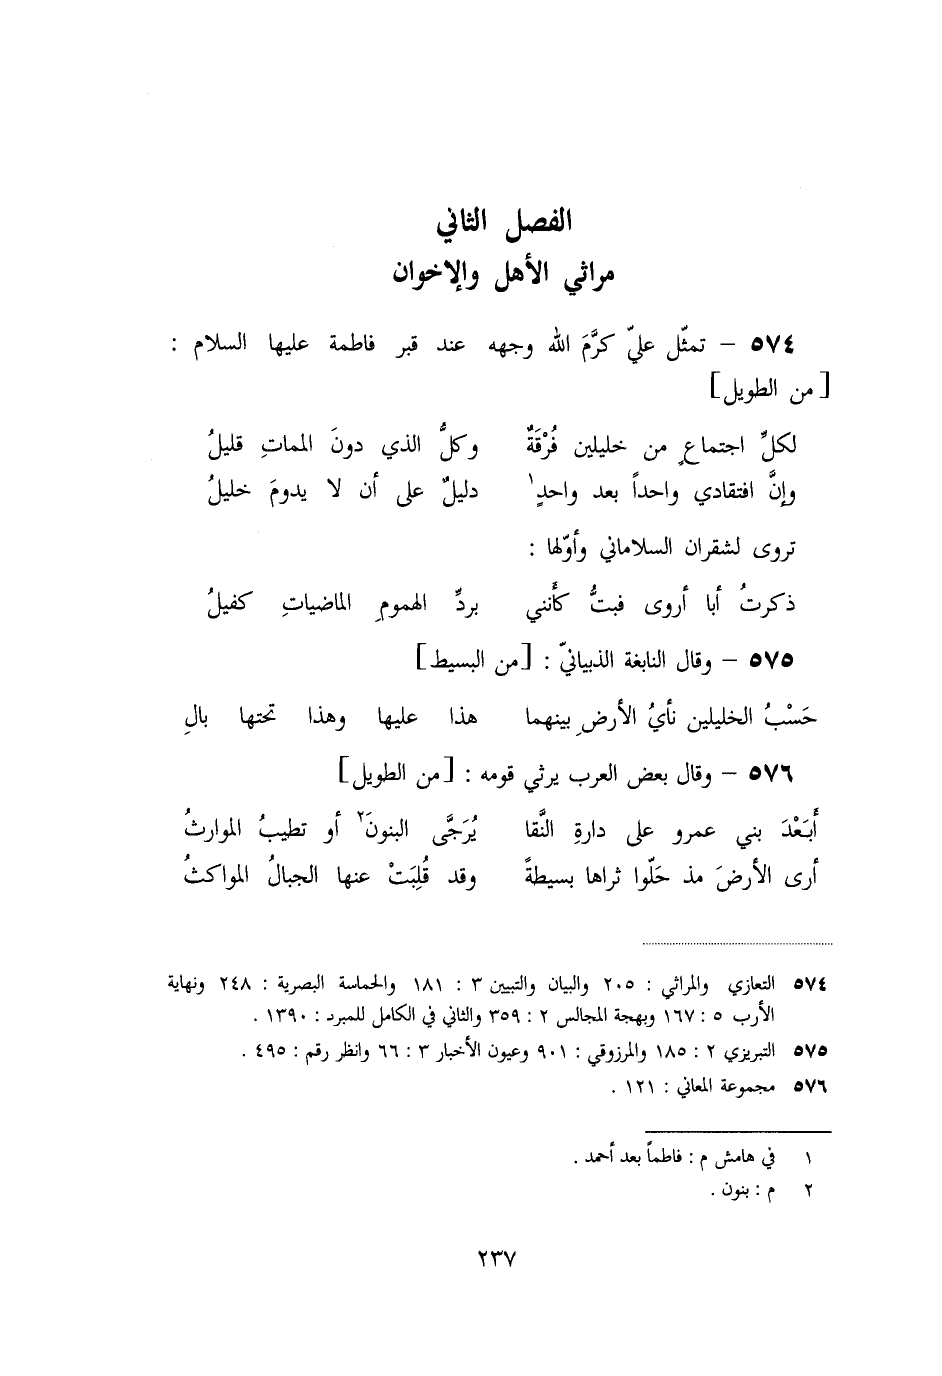 الفصل الثاني
مراثي الأهل والإخوان
٥٧٤ – تمثّل عليّ كرَّمَ الله وجهه عند قبر فاطمة عليها السلام :
[ من الطويل ]
لكلِّ اجتماعٍ من خليلين فُرْقَةٌ وكلُّ الذي دونَ المماتِ قليلُ
وإنَّ افتقادي واحداً بعد واحدٍ١ دليلٌ على أن لا يدومَ خليلُ
تروى لشقران السلاماني وأوّلها :
ذكرتُ أبا أروى فبتُّ كأنني بردِّ الهمومِ الماضياتِ كفيلُ
٥٧٥ – وقال النابغة الذبيانيّ : [ من البسيط ]
حَسْبُ الخليلين نأيُ الأرضِ بينهما هذا عليها وهذا تحتها بالِ
٥٧٦ – وقال بعض العرب يرثي قومه : [ من الطويل ]
أَبَعْدَ بني عمرو على دارةِ النَّقا يُرَجَّى البنونَ٢ أو تطيبُ الموارثُ
أرى الأرضَ مذ حَلّوا ثراها بسيطةً وقد قُلِبَتْ عنها الجبالُ المواكثُ
٥٧٤ التعازي والمراثي : ٢٠٥ والبيان والتبيين ٣ : ١٨١ والحماسة البصرية : ٢٤٨ ونهاية
الأرب ٥ : ١٦٧ وبهجة المجالس ٢ : ٣٥٩ والثاني في الكامل للمبرد : ١٣٩٠ .
٥٧٥ التبريزي ٢ : ١٨٥ والمرزوقي : ٩٠١ وعيون الأخبار ٣ : ٦٦ وانظر رقم : ٤٩٥ .
٥٧٦ مجموعة المعاني : ١٢١ .
١ في هامش م : فاطماً بعد أحمد .
٢ م : بنون .
٢٣٧